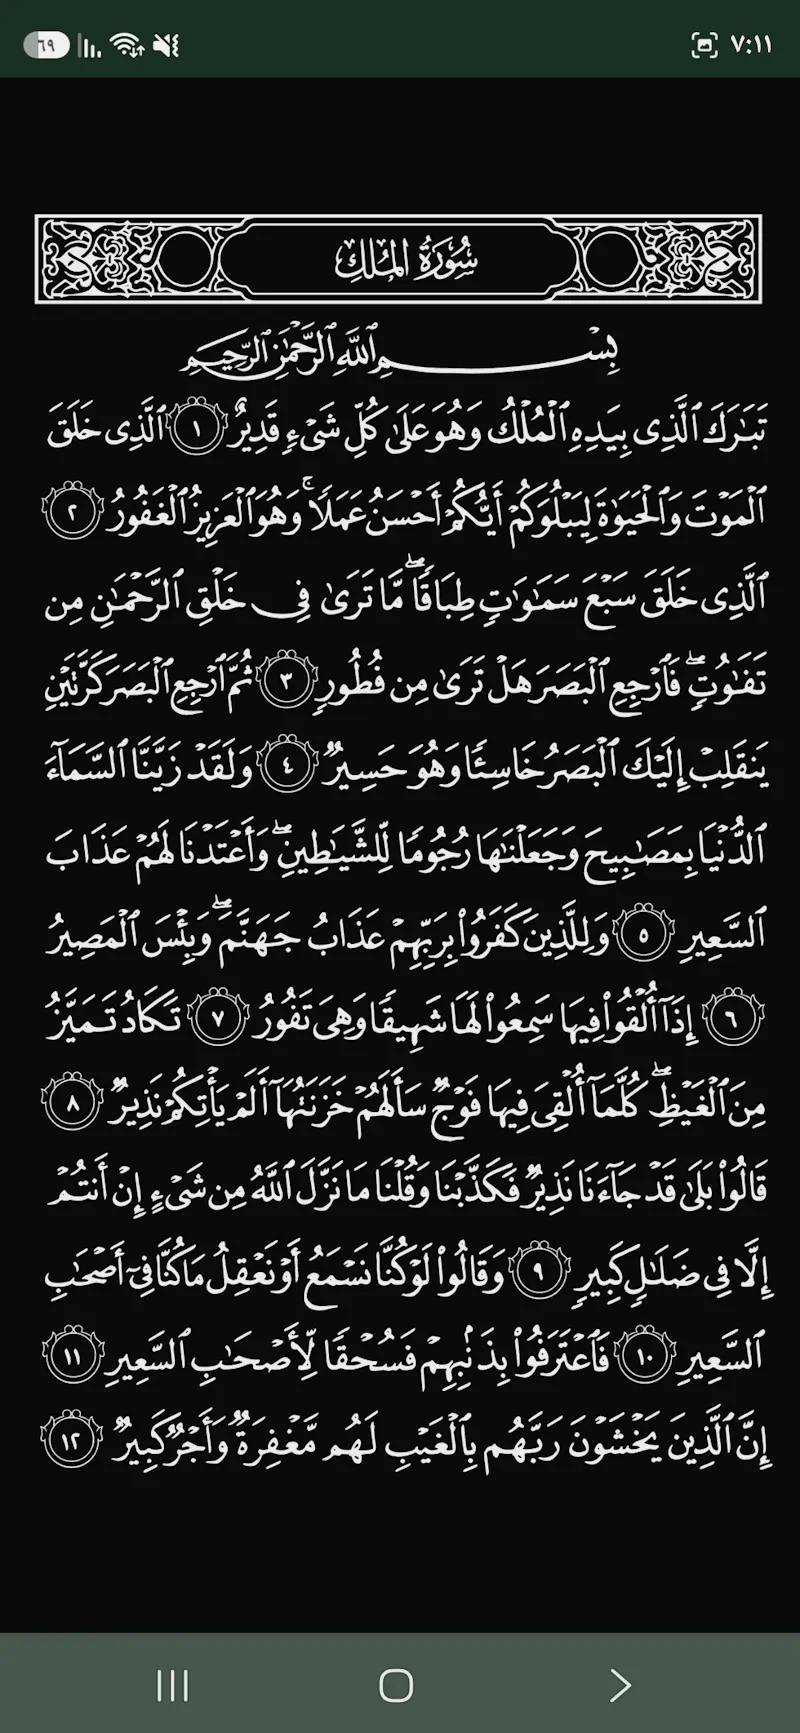 ٧:١١
٦٩
سُورَةُ المُلْكِ
بِسْمِ ٱللَّهِ ٱلرَّحْمَٰنِ ٱلرَّحِيمِ
تَبَٰرَكَ ٱلَّذِى بِيَدِهِ ٱلْمُلْكُ وَهُوَ عَلَىٰ كُلِّ شَىْءٍ قَدِيرٌ ١ ٱلَّذِى خَلَقَ
ٱلْمَوْتَ وَٱلْحَيَوٰةَ لِيَبْلُوَكُمْ أَيُّكُمْ أَحْسَنُ عَمَلًا ۚ وَهُوَ ٱلْعَزِيزُ ٱلْغَفُورُ ٢
ٱلَّذِى خَلَقَ سَبْعَ سَمَٰوَٰتٍ طِبَاقًا ۖ مَّا تَرَىٰ فِى خَلْقِ ٱلرَّحْمَٰنِ مِن
تَفَٰوُتٍ ۖ فَٱرْجِعِ ٱلْبَصَرَ هَلْ تَرَىٰ مِن فُطُورٍ ٣ ثُمَّ ٱرْجِعِ ٱلْبَصَرَ كَرَّتَيْنِ
يَنقَلِبْ إِلَيْكَ ٱلْبَصَرُ خَاسِئًا وَهُوَ حَسِيرٌ ٤ وَلَقَدْ زَيَّنَّا ٱلسَّمَآءَ
ٱلدُّنْيَا بِمَصَٰبِيحَ وَجَعَلْنَٰهَا رُجُومًا لِّلشَّيَٰطِينِ ۖ وَأَعْتَدْنَا لَهُمْ عَذَابَ
ٱلسَّعِيرِ ٥ وَلِلَّذِينَ كَفَرُوا۟ بِرَبِّهِمْ عَذَابُ جَهَنَّمَ ۖ وَبِئْسَ ٱلْمَصِيرُ
٦ إِذَآ أُلْقُوا۟ فِيهَا سَمِعُوا۟ لَهَا شَهِيقًا وَهِىَ تَفُورُ ٧ تَكَادُ تَمَيَّزُ
مِنَ ٱلْغَيْظِ ۖ كُلَّمَآ أُلْقِىَ فِيهَا فَوْجٌ سَأَلَهُمْ خَزَنَتُهَآ أَلَمْ يَأْتِكُمْ نَذِيرٌ ٨
قَالُوا۟ بَلَىٰ قَدْ جَآءَنَا نَذِيرٌ فَكَذَّبْنَا وَقُلْنَا مَا نَزَّلَ ٱللَّهُ مِن شَىْءٍ إِنْ أَنتُمْ
إِلَّا فِى ضَلَٰلٍ كَبِيرٍ ٩ وَقَالُوا۟ لَوْ كُنَّا نَسْمَعُ أَوْ نَعْقِلُ مَا كُنَّا فِىٓ أَصْحَٰبِ
ٱلسَّعِيرِ ١٠ فَٱعْتَرَفُوا۟ بِذَنۢبِهِمْ فَسُحْقًا لِّأَصْحَٰبِ ٱلسَّعِيرِ ١١
إِنَّ ٱلَّذِينَ يَخْشَوْنَ رَبَّهُم بِٱلْغَيْبِ لَهُم مَّغْفِرَةٌ وَأَجْرٌ كَبِيرٌ ١٢